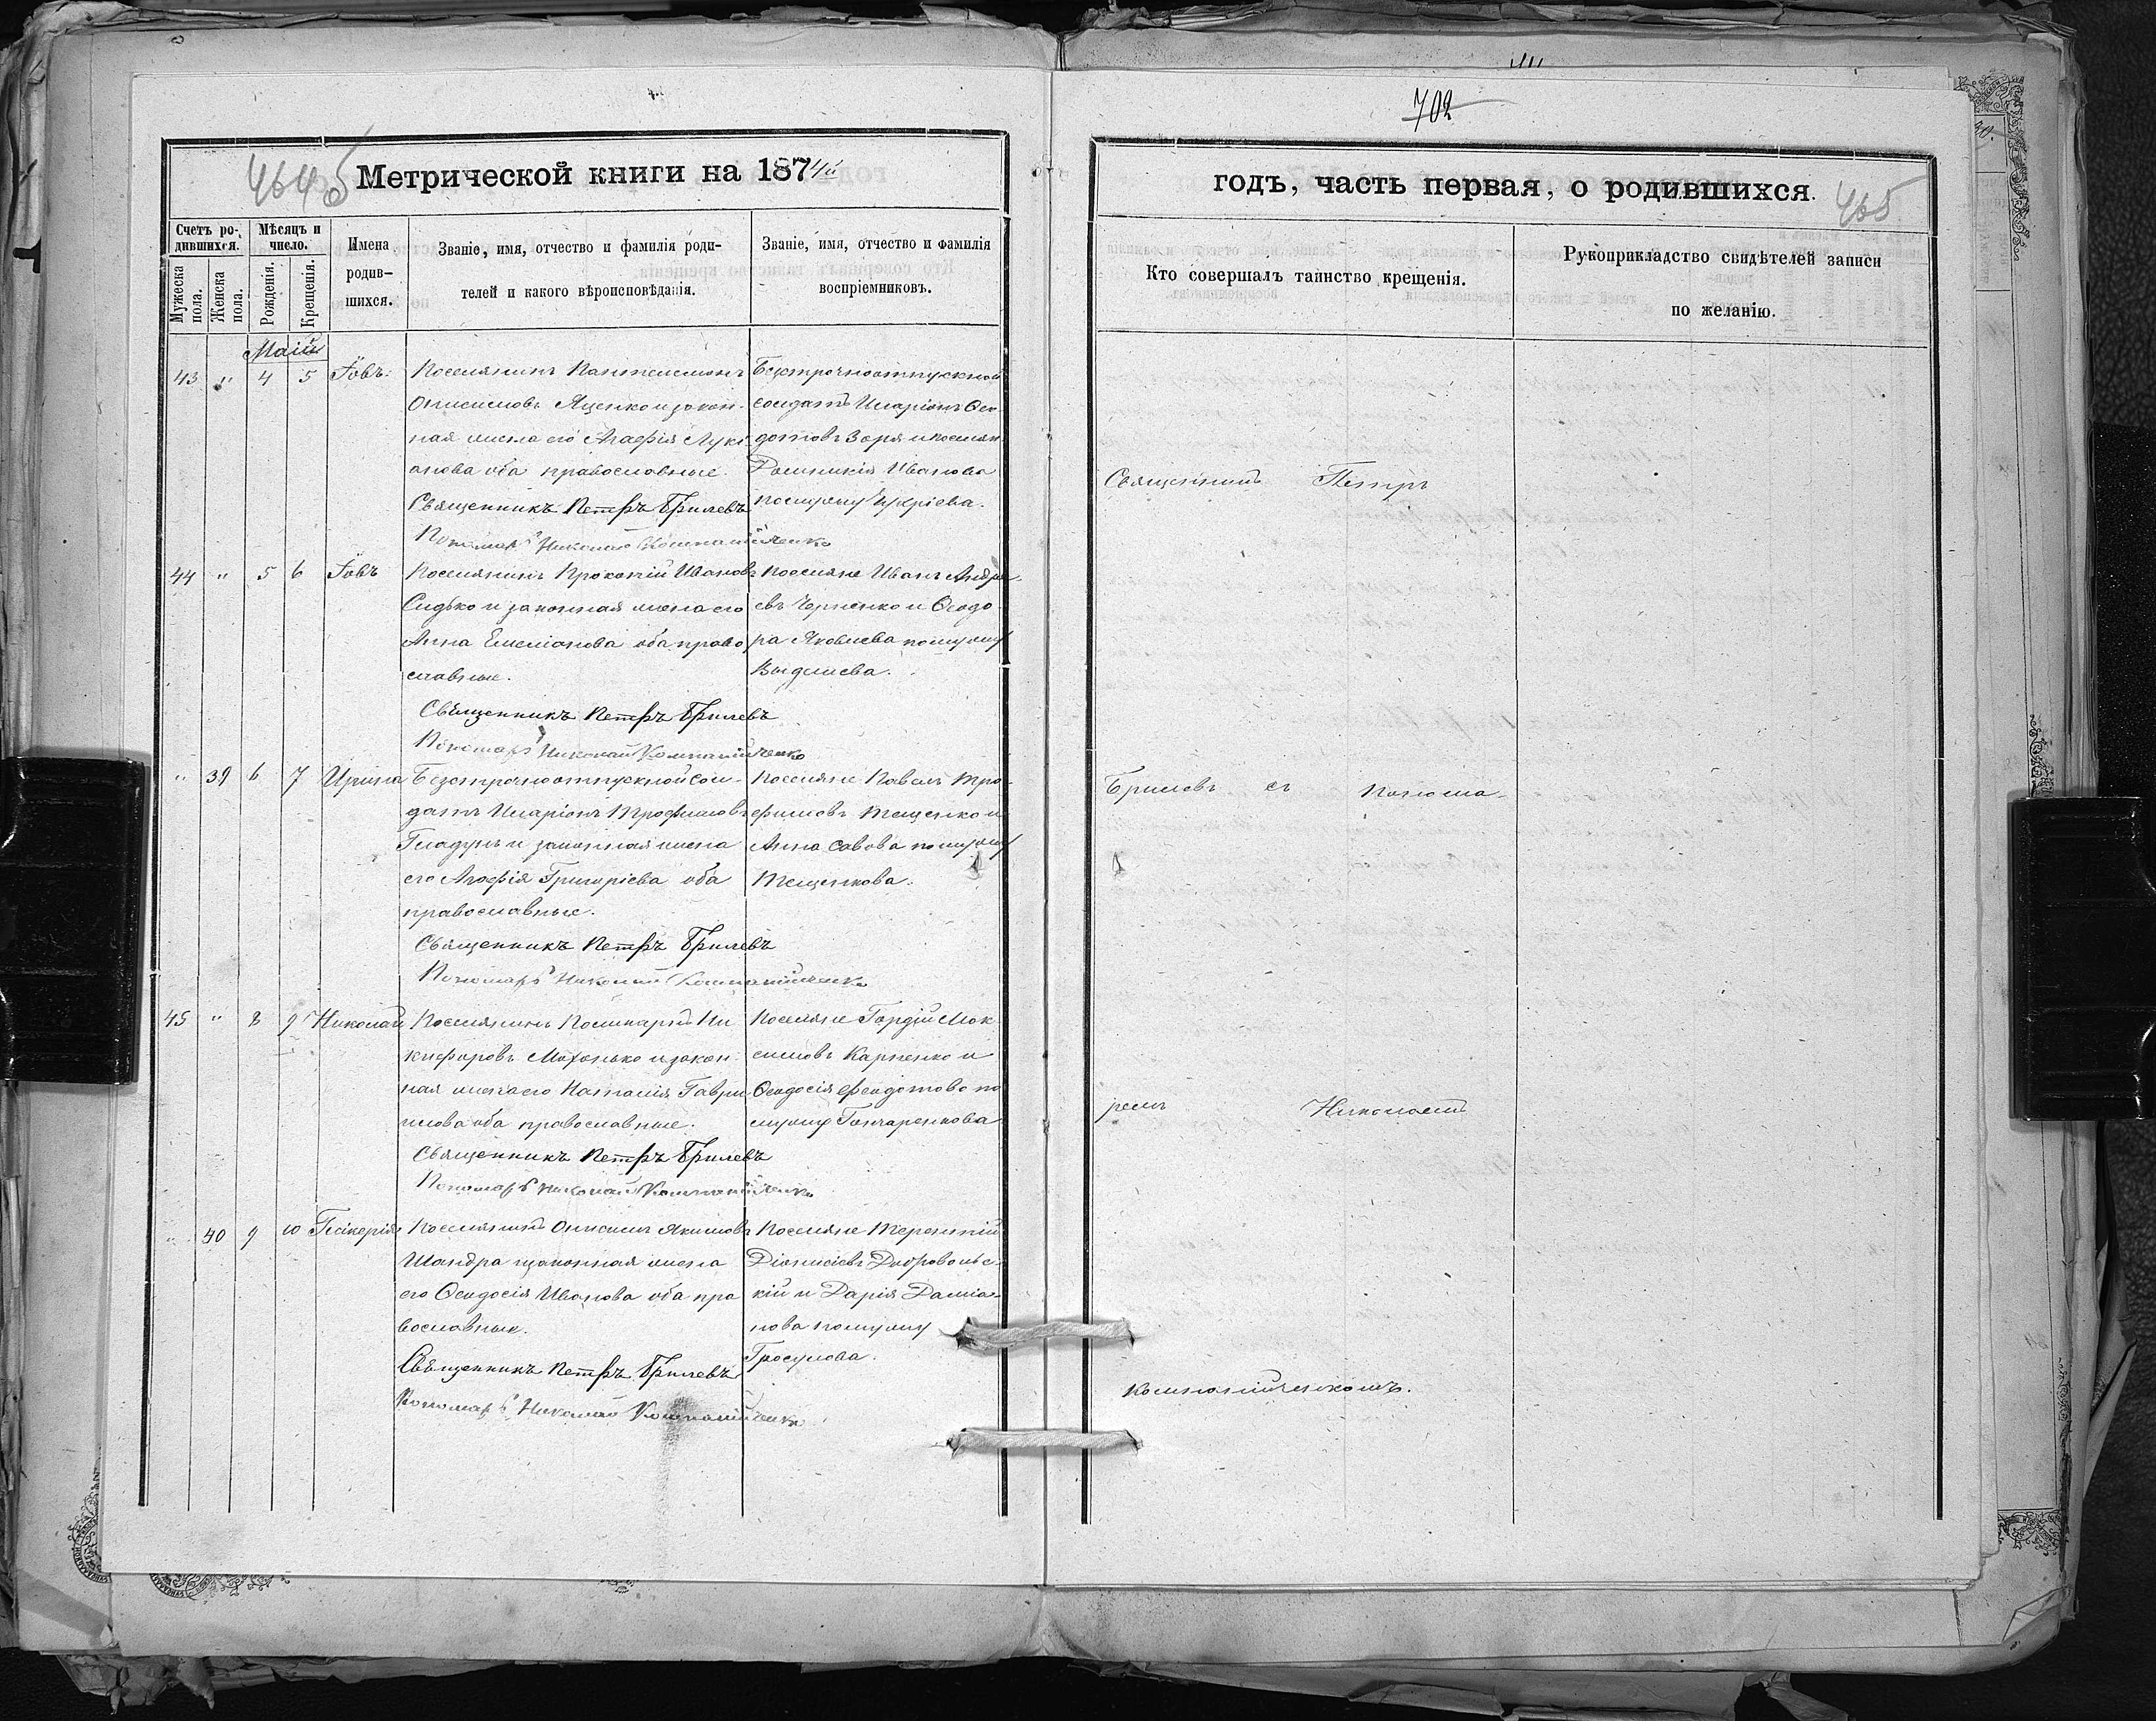 702
464б
Метрической книги на 1874й
годъ, часть первая, о родившихся.
465
Счетъ родившихся.
Мужеска пола.
Женска пола.
Мѣсяцъ и число.
Рожденія.
Крещенія.
Имена родив-
шихся.
Званіе, имя, отчество и фамилія роди-
телей и какого вѣроисповѣданія.
Званіе, имя, отчество и фамилія
воспріемниковъ.
Кто совершалъ таинство крещенія.
Рукоприкладство свидѣтелей записи
по желанію.
Маій
43 " 4 5 Іовъ.
Поселянинъ Пантелеимонъ
Онисимовъ Яценко и закон-
ная жена его Агафія Лукі-
анова оба православные.
Священникъ Петръ Брилевъ
Пономарь Николай Компанійченко
Безсрочноотпускной
солдатъ Иларіонъ Ѳео-
дотовъ Заря и поселян
Домникія Иванова
по мужу
44 " 5 6 Іовъ
Поселянинъ Прокопій Ивановъ
Сидько и законная жена его
Анна Емеліанова оба право
славные.
Священникъ Петръ Брилевъ
Пономарь Николай Компанійченко
Поселяне Иванъ Андре-
евъ Черненко и Ѳеодо-
ра Яковлева по мужу
" 39 6 7 Ирина
Безсрочноотпускной сол-
датъ Иларіонъ Трофимовъ
Гладунъ и законная жена
его Агафія Григоріева оба
православные.
Священникъ Петръ Брилевъ
Пономарь Николай Компанійченко
Поселяне Павелъ Тро-
фимовъ Тещенко и
Анна Савова по мужу
Тещенкова.
45 " 8 9 Николай
Поселянинъ Поликарпъ Ни
кифоровъ Махонько и закон-
ная жена его Наталія Гаври
илова оба православные.
Священникъ Петръ Брилевъ
Пономарь Николай Компанійченко
Поселяне Гордій Мак
симовъ Карпенко и
Ѳеодосія Феодотова по
мужу Гончаренкова
" 40 9 10 Гликерія
Поселянинъ Онисимъ Якимовъ
Шандра и законная жена
его Ѳеодосія Иванова оба пра
вославные.
Священникъ Петръ Брилевъ
Пономарь Николай Компанійченко
Поселяне Терентій
Діонисіевъ Добровольс-
кій и Дарія Даміа-
нова по мужу
Гросулова.
Священникъ Петръ
Брилевъ съ понома-
ремъ Николаемъ
Компанійченкомъ.